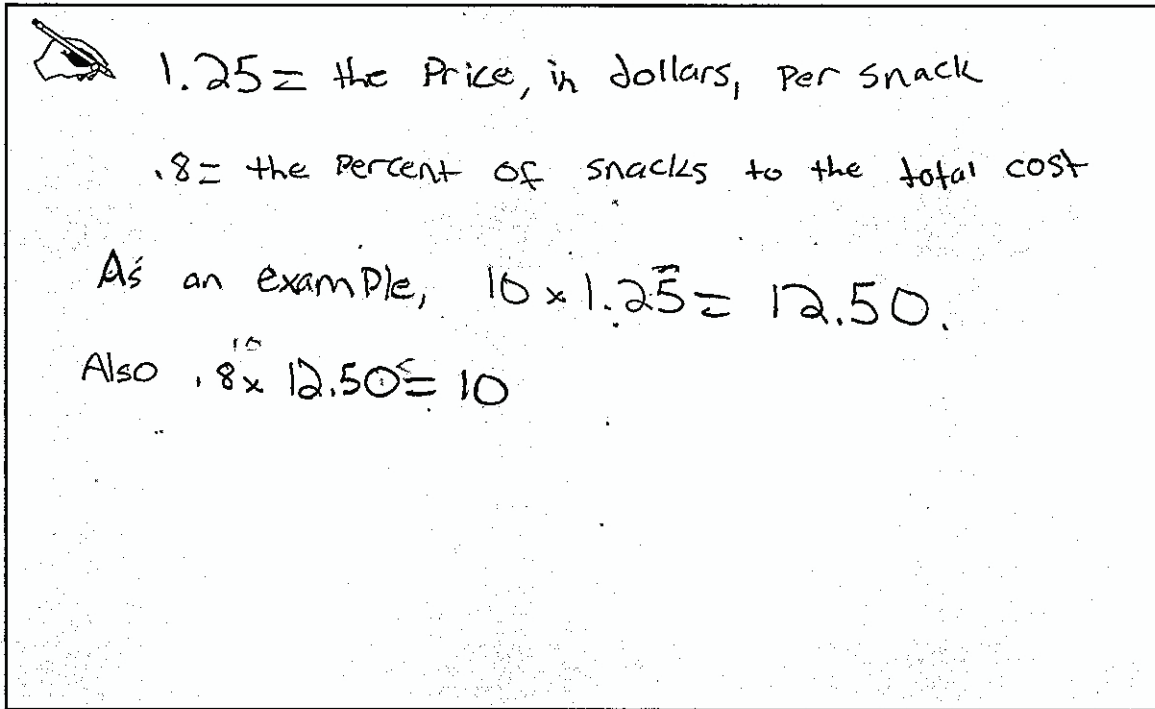 1.25 = the Price, in dollars, per snack
.8 = the percent of snacks to the total cost
As an example, 10 x 1.25 = 12.50.
Also .8 x 12.50 = 10